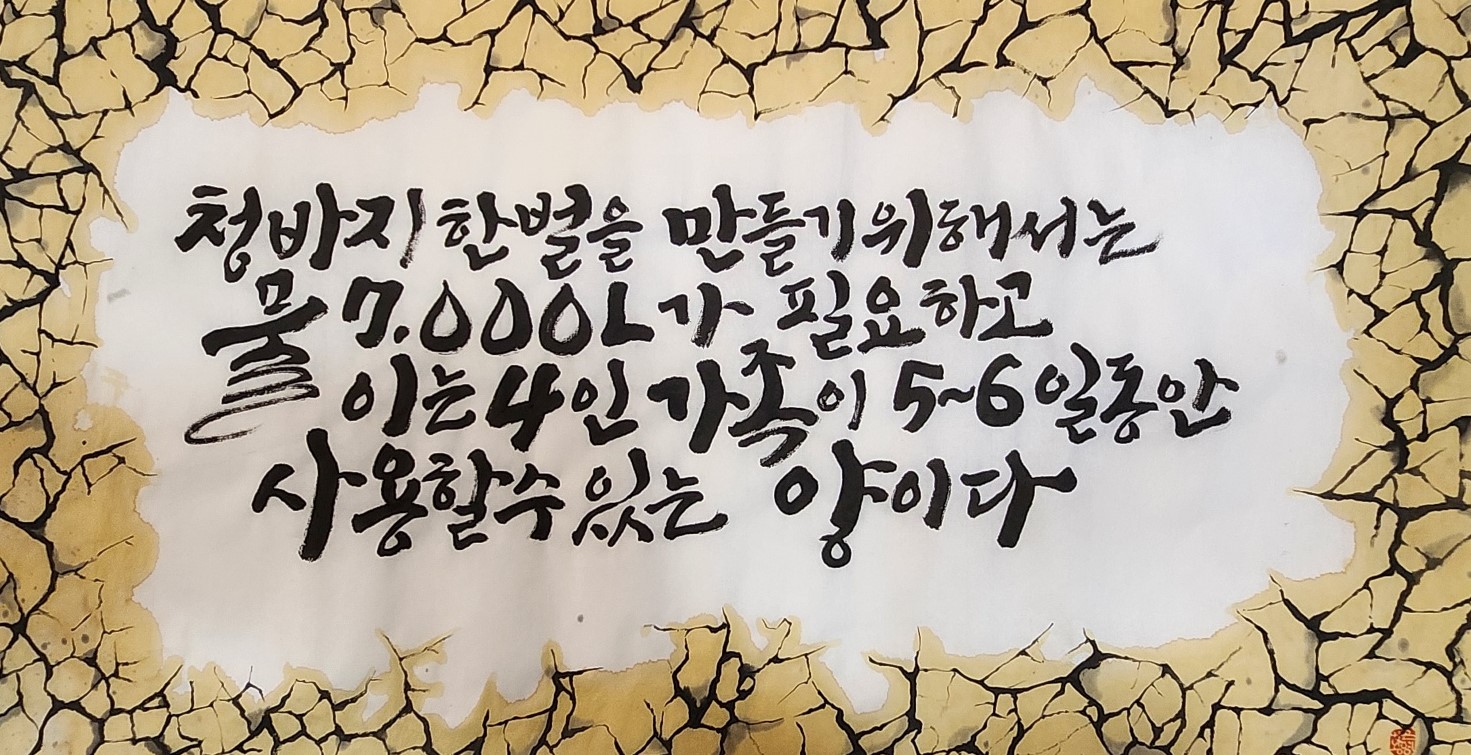 청바지 한벌을 만들기위해서는
물 7.000L가 필요하고
이는 4인 가족이 5~6일동안
사용할수있는 양이다